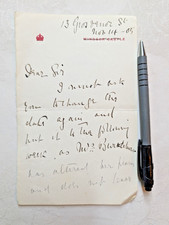 13 Grosvenor St
Nov 14
Dear Sir
I must ask
you to change the
date again and
put it to the following
week, as Mrs
has altered her plans
and does not